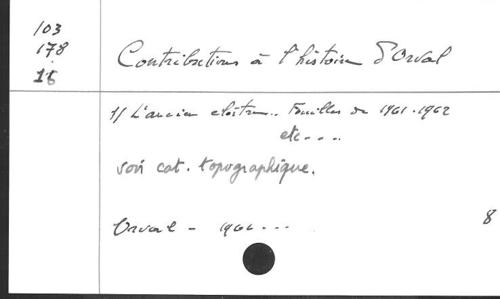 103
178
16
Contributions à l'histoire d'Orval
1/ L'ancien cloître.. Fouilles de 1961-1962
etc....
voir cat. topographique.
Orval - 196 ...
8